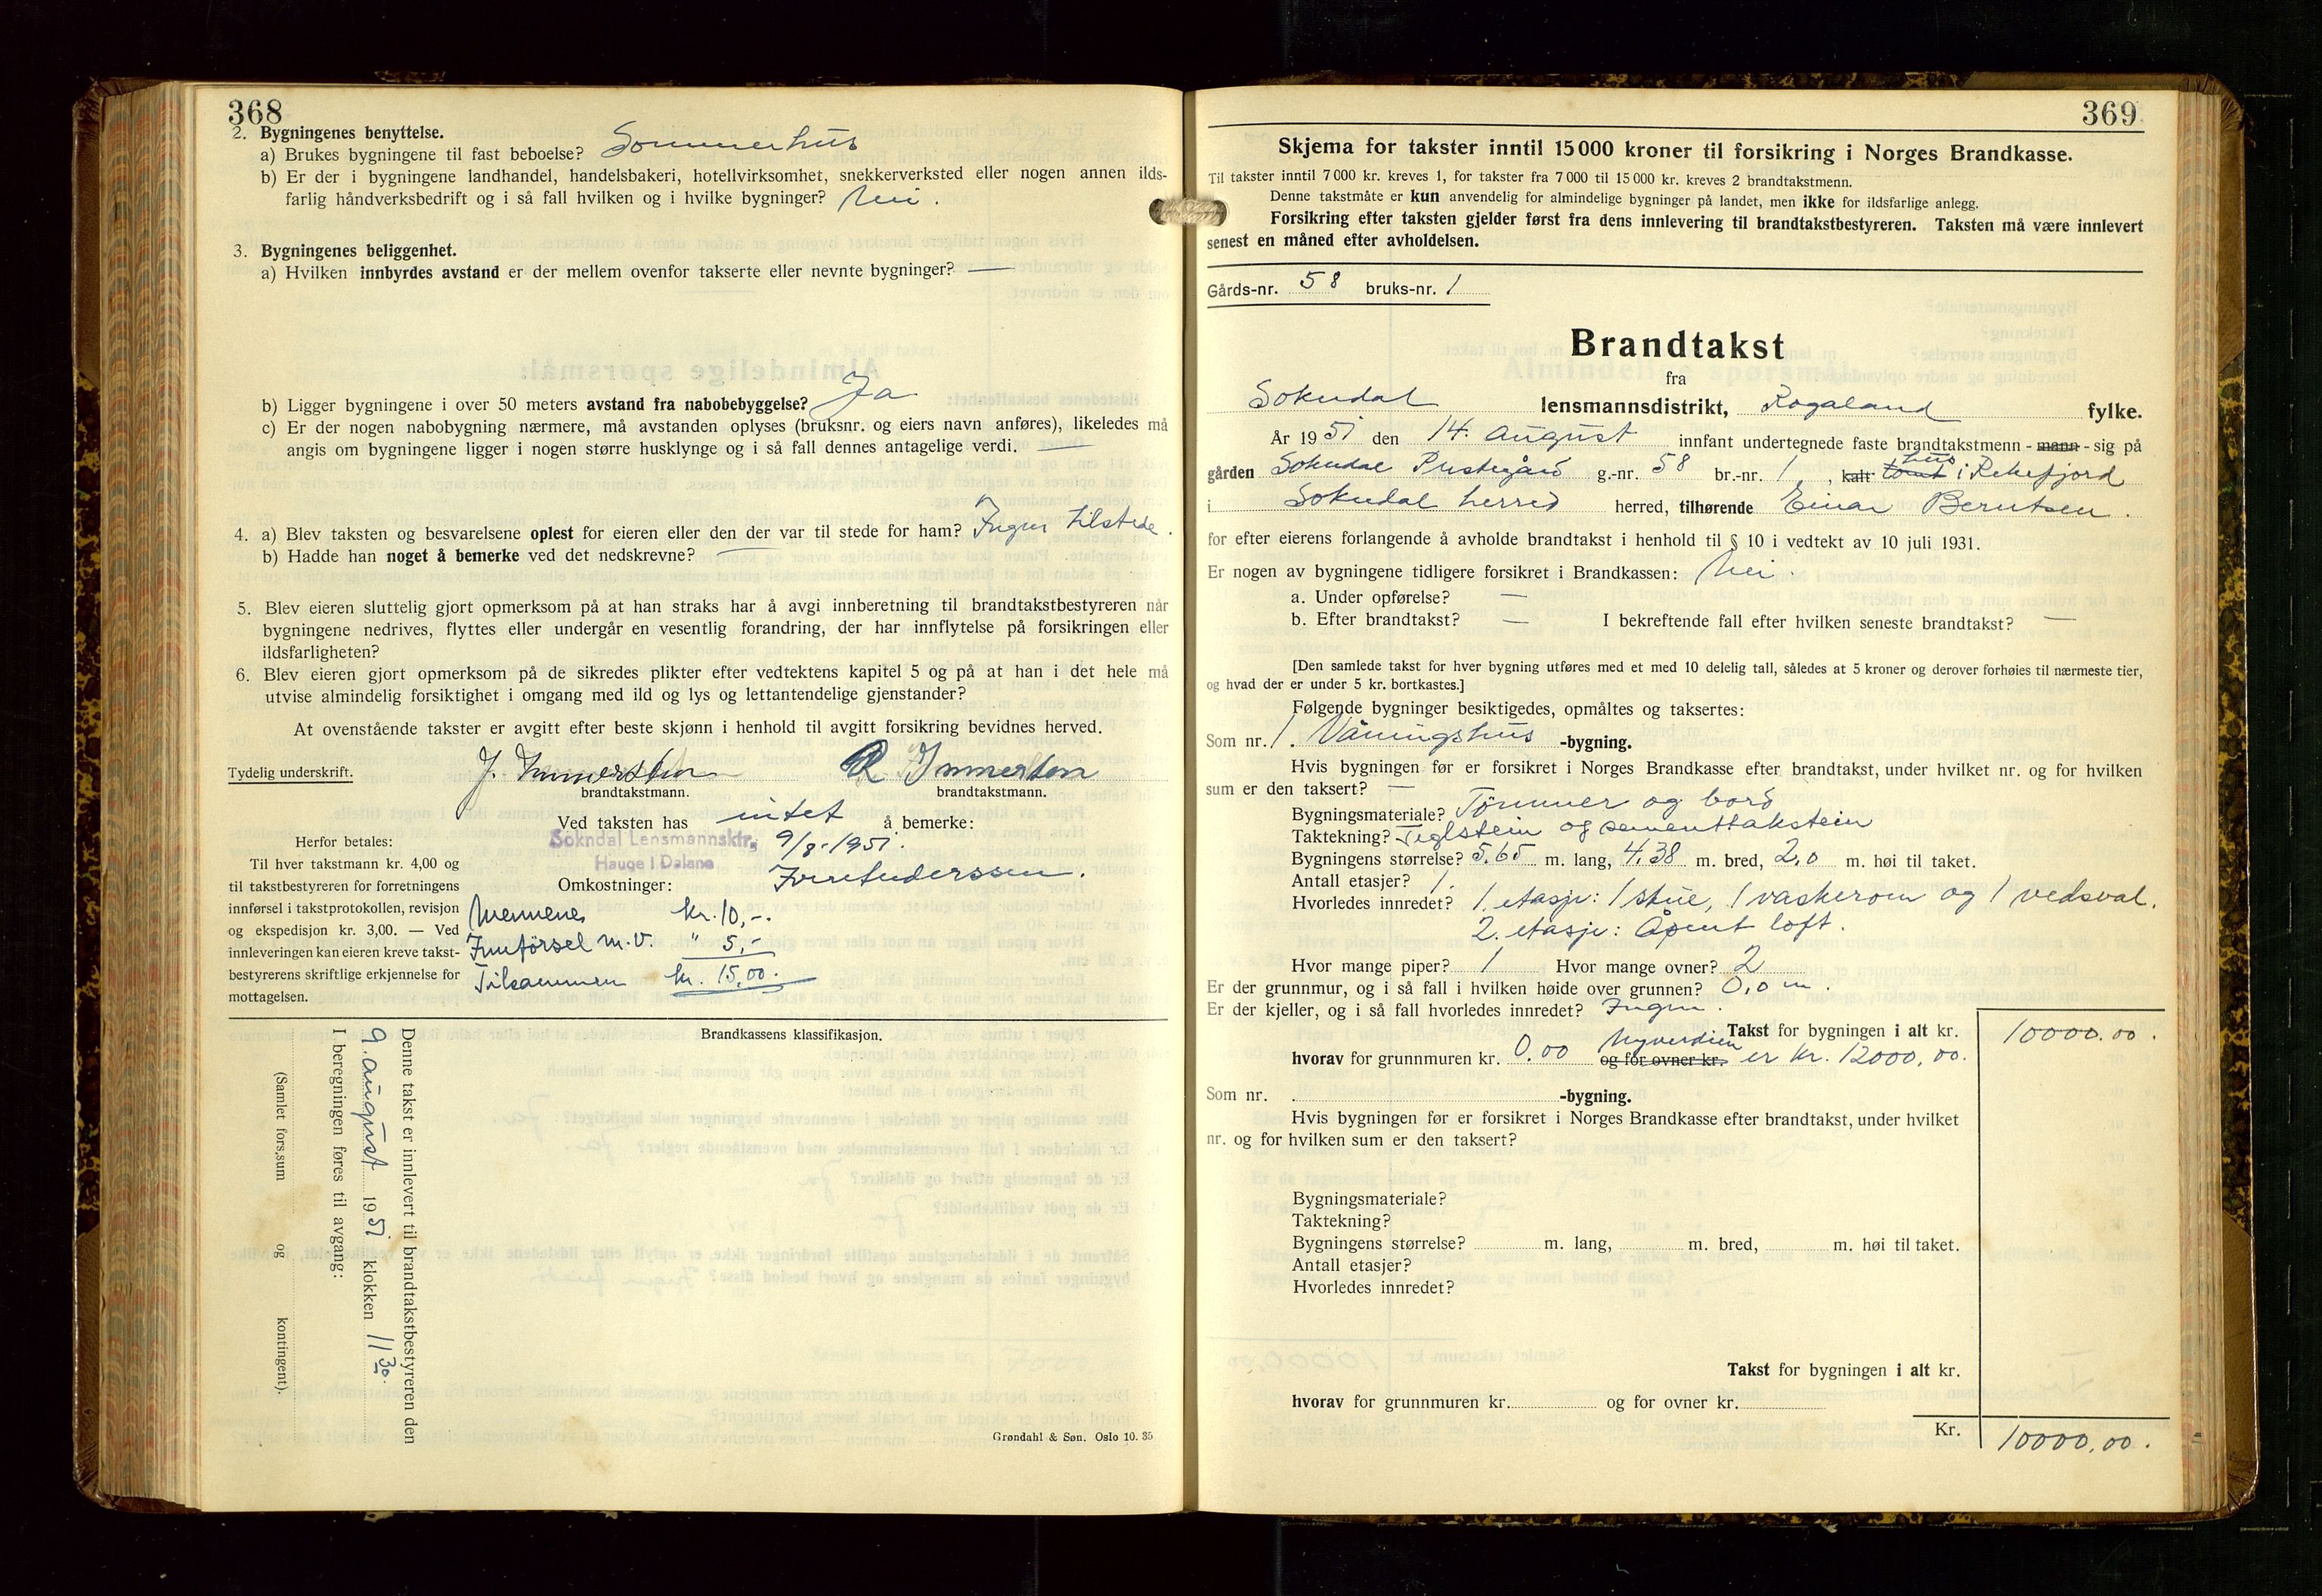 368
2. Bygningenes benyttelse.
a) Brukes bygningene til fast beboelse? Sommerhus
b) Er der i bygningene landhandel, handelsbakeri, hotellvirksomhet, snekkerverksted eller nogen annen ilds-
farlig håndverksbedrift og i så fall hvilken og i hvilke bygninger? Nei.
3. Bygningenes beliggenhet.
a) Hvilken innbyrdes avstand er der mellem ovenfor takserte eller nevnte bygninger? —
b) Ligger bygningene i over 50 meters avstand fra nabobebyggelse? Ja
c) Er der nogen nabobygning nærmere, må avstanden oplyses (bruksnr. og eiers navn anføres), likeledes må
angis om bygningene ligger i nogen større husklynge og i så fall dennes antagelige verdi. —
4. a) Blev taksten og besvarelsene oplest for eieren eller den der var til stede for ham? Ingen tilstede.
b) Hadde han noget å bemerke ved det nedskrevne? —
5. Blev eieren sluttelig gjort opmerksom på at han straks har å avgi innberetning til brandtakstbestyreren når
bygningene nedrives, flyttes eller undergår en vesentlig forandring, der har innflytelse på forsikringen eller
ildsfarligheten?
6. Blev eieren gjort opmerksom på de sikredes plikter efter vedtektens kapitel 5 og på at han i det hele må
utvise almindelig forsiktighet i omgang med ild og lys og lettantendelige gjenstander?
At ovenstående takster er avgitt efter beste skjønn i henhold til avgitt forsikring bevidnes herved.
Tydelig underskrift.
brandtakstmann. brandtakstmann.
Ved taksten has intet å bemerke:
Sokndal Lensmannsktr. 9/8-1951.
Hauge i Dalane
Herfor betales:
Til hver takstmann kr. 4,00 og
til takstbestyreren for forretningens
innførsel i takstprotokollen, revisjon
og ekspedisjon kr. 3,00. — Ved
innleveringen kan eieren kreve takst-
bestyrerens skriftlige erkjennelse for
mottagelsen.
Omkostninger:
Mennene kr. 10,-.
Innførsel m.v. " 5,-
Tilsammen kr. 15,00.
Brandkassens klassifikasjon.
Denne takst er innlevert til brandtakstbestyreren den
9. august 1951 klokken 11 30.
I beregningen føres til avgang:
(Samlet fors.sum og kontingent).
Grøndahl & Søn. Oslo 10. 35
369
Skjema for takster inntil 15 000 kroner til forsikring i Norges Brandkasse.
Til takster inntil 7 000 kr. kreves 1, for takster fra 7 000 til 15 000 kr. kreves 2 brandtakstmenn.
Denne takstmåte er kun anvendelig for almindelige bygninger på landet, men ikke for ildsfarlige anlegg.
Forsikring efter taksten gjelder først fra dens innlevering til brandtakstbestyreren. Taksten må være innlevert
senest en måned efter avholdelsen.
Gårds-nr. 58 bruks-nr. 1
Brandtakst
fra
Sokndal lensmannsdistrikt, Rogaland fylke.
År 1951 den 14. august innfant undertegnede faste brandtakstmenn - mann - sig på
gården Sokndal Prestegård g.-nr. 58 br.-nr. 1, kalt tomt hus i Rekefjord
i Sokndal herred herred, tilhørende Einar Berntsen.
for efter eierens forlangende å avholde brandtakst i henhold til § 10 i vedtekt av 10 juli 1931.
Er nogen av bygningene tidligere forsikret i Brandkassen: Nei.
a. Under opførelse? —
b. Efter brandtakst? — I bekreftende fall efter hvilken seneste brandtakst? —
[Den samlede takst for hver bygning utføres med et med 10 delelig tall, således at 5 kroner og derover forhøies til nærmeste tier,
og hvad der er under 5 kr. bortkastes.]
Følgende bygninger besiktigedes, opmåltes og taksertes:
Som nr. 1. Våningshus -bygning.
Hvis bygningen før er forsikret i Norges Brandkasse efter brandtakst, under hvilket nr. og for hvilken
sum er den taksert? —
Bygningsmateriale? Tømmer og bord
Taktekning? Teglstein og sementtakstein
Bygningens størrelse? 5.65 m. lang, 4.38 m. bred, 2,0 m. høi til taket.
Antall etasjer? 1.
Hvorledes innredet? 1. etasje: 1 stue, 1 vaskerom og 1 vedsval.
2. etasje: Åpent loft.
Hvor mange piper? 1 Hvor mange ovner? 2
Er der grunnmur, og i så fall i hvilken høide over grunnen? 0,0 m.
Er der kjeller, og i så fall hvorledes innredet? Ingen.
Takst for bygningen i alt kr. 10000.00.
hvorav for grunnmuren kr. 0.00 og for ovner kr. Nyverdien er kr. 12000,00.
Som nr. -bygning.
Hvis bygningen før er forsikret i Norges Brandkasse efter brandtakst, under hvilket
nr. og for hvilken sum er den taksert?
Bygningsmateriale?
Taktekning?
Bygningens størrelse? m. lang, m. bred, m. høi til taket.
Antall etasjer?
Hvorledes innredet?
Takst for bygningen i alt kr.
hvorav for grunnmuren kr. og for ovner kr.
Kr. 10000,00.